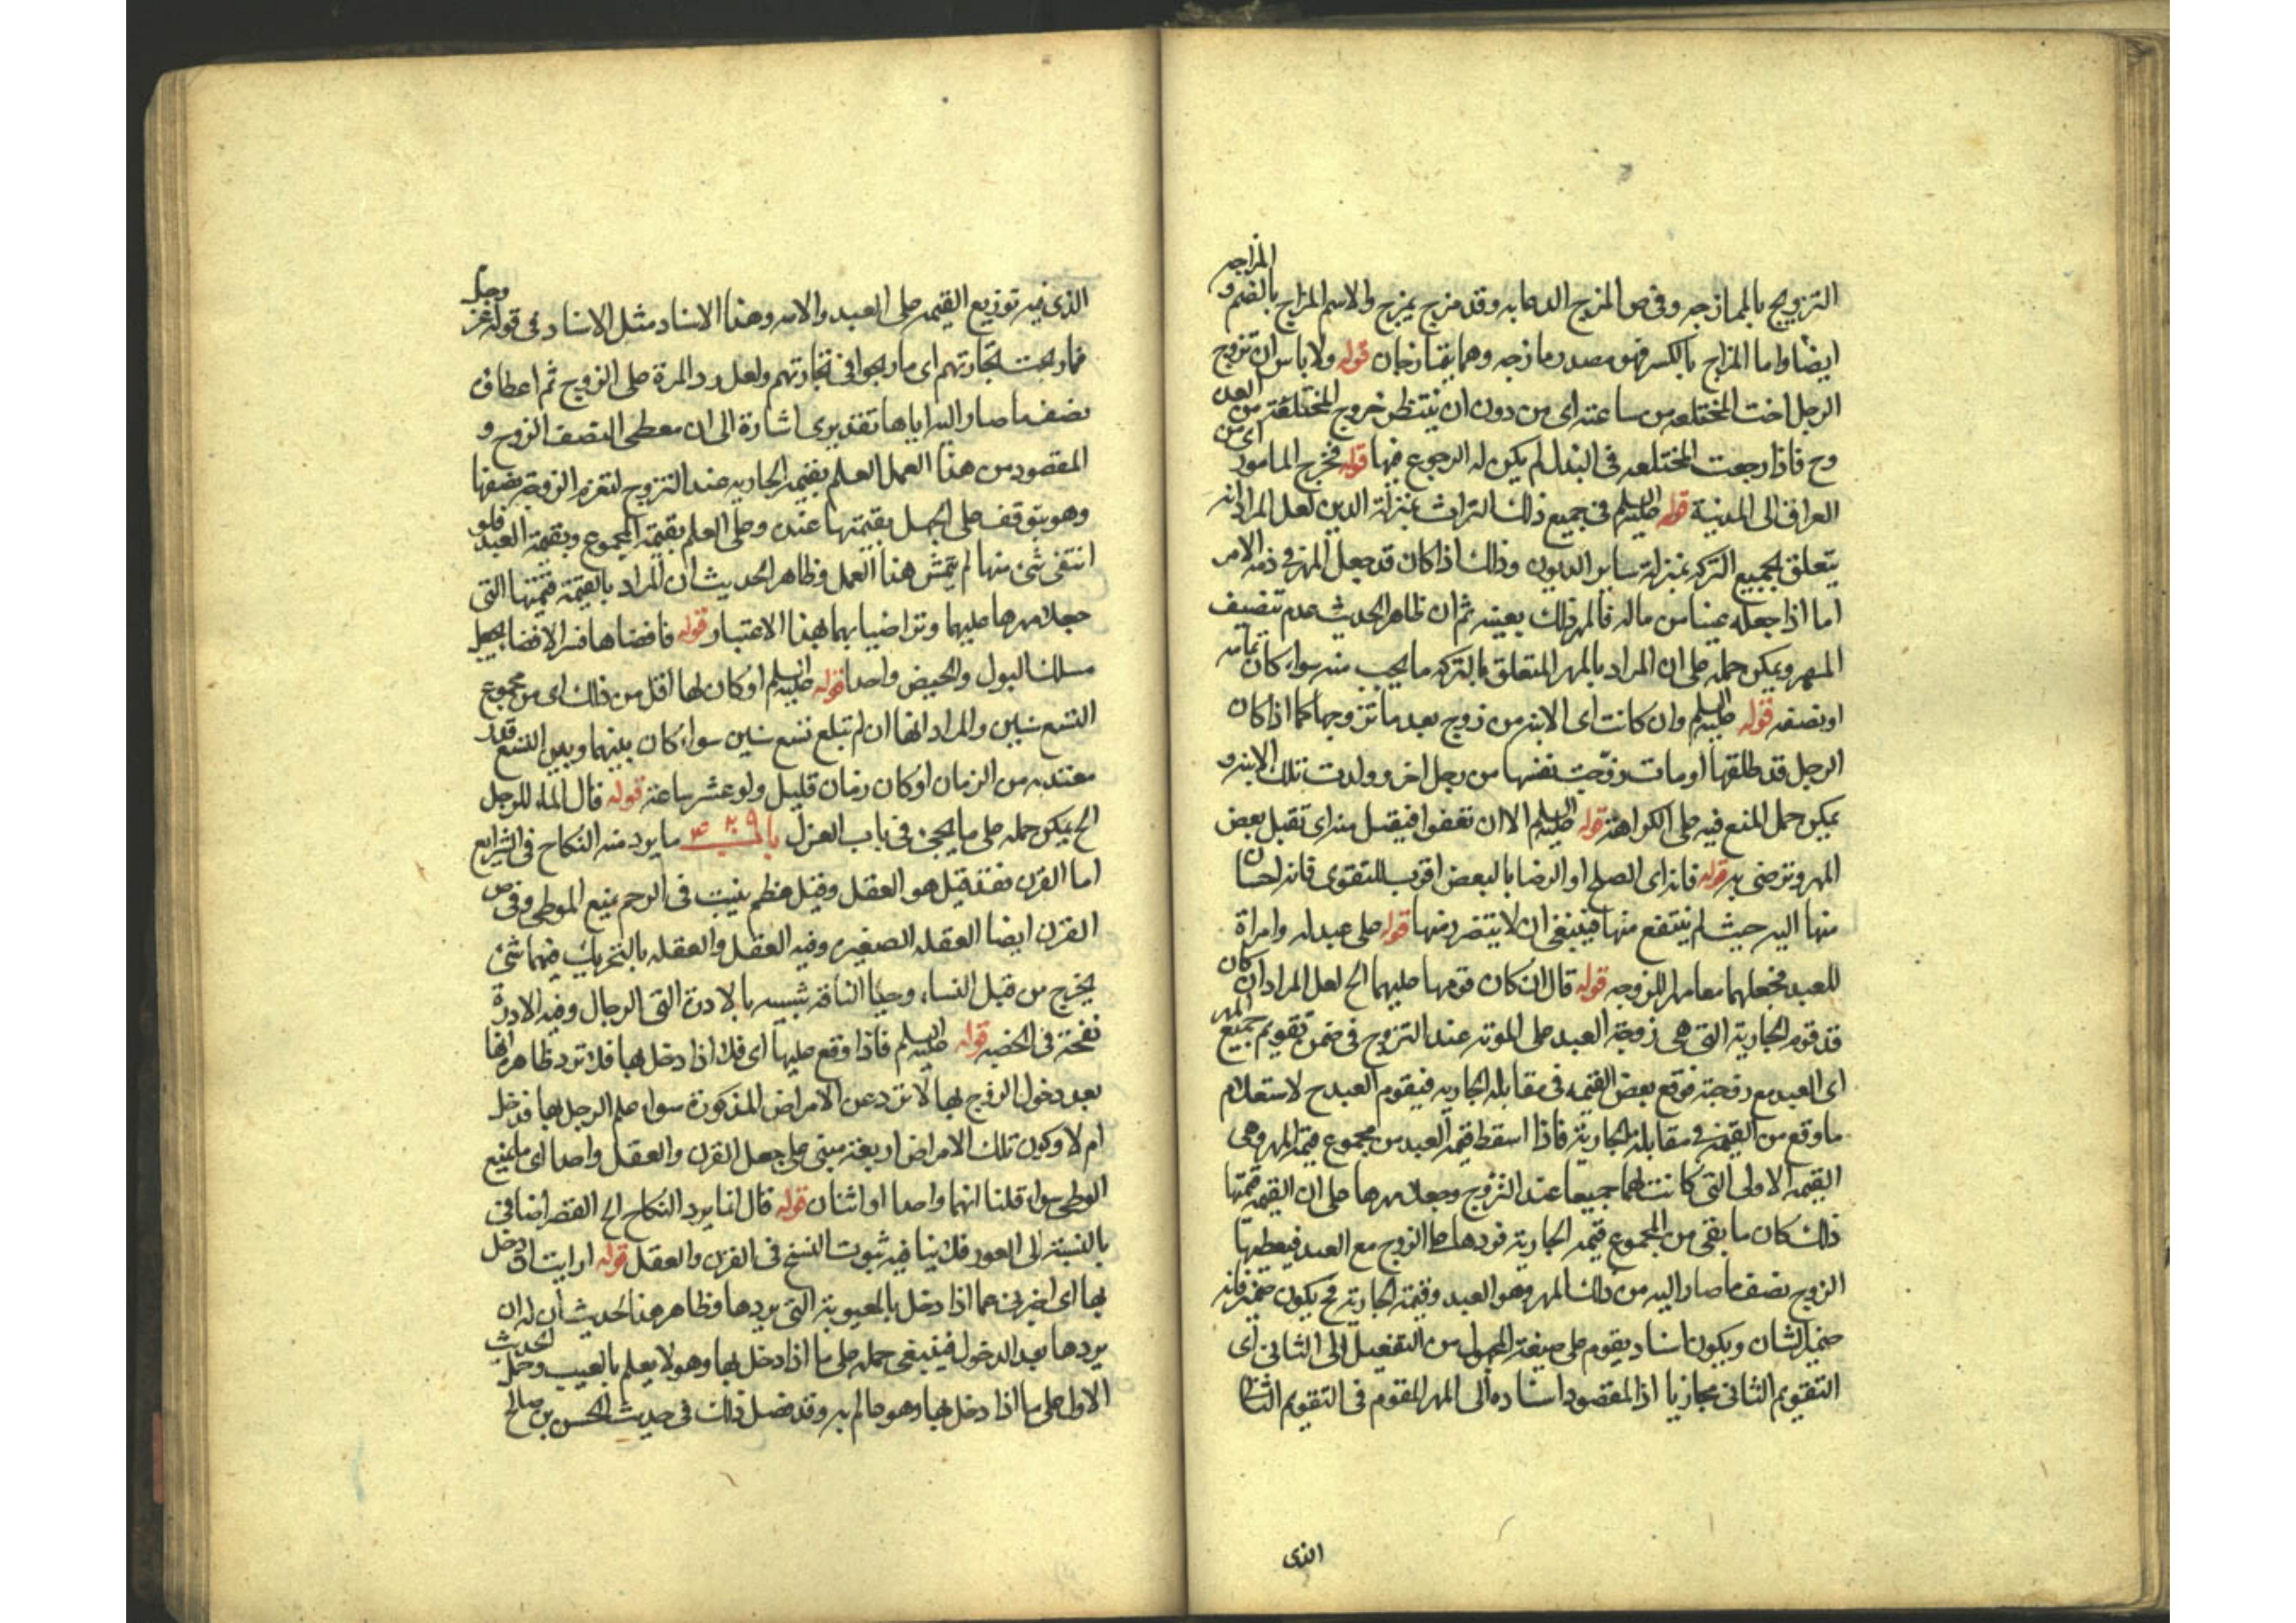 التزويج بالممازجه وفي ص المزح الدعابه وقد مزح يمزح والاسم المزاح بالضم و المزاحه
ايضا واما المزاح بالكسر فهو مصدر مازحه وهما يتمازحان قوله ولا باس ان تزوج
الرجل اخت المختلعه من ساعته اى من دون ان ينتظر خروج المختلعة من العدة
وح فاذا رجعت المختلعه فى البذل لم يكن له الرجوع فيها قوله فخرج المامور اى من
العراق الى المدينة قوله عليه السلم في جميع ذلك التراث بمنزلة الدين لعل المراد انه
يتعلق بجميع التركه بمنزلة ساير الديون وذلك اذا كان قد جعل المهر فى ذمه الامر
اما اذا جعله عينا من ماله فالمهر ذلك بعينه ثم ان ظاهر الحديث عدم تنصيف
المهر ويمكن حمله على ان المراد بالمهر المتعلق بالتركه ما يجب منه سواء كان تمامه
او نصفه قوله عليه السلم وان كانت اى الابنه من زوج بعد ما تزوجها كما اذا كان
الرجل قد طلقها او مات وزوجت نفسها من رجل اخر وولدت تلك الابنه و
يمكن حمل المنع فيه على الكراهة قوله عليه السلم الا ان تعفوا فيقبل منه اى تقبل بعض
المهر وترضى به قوله فانه اى الصلح او الرضا بالبعض اقرب للتقوى فانه احسان
منها اليه حيث لم ينتفع منها فينبغى ان لا يتضرر منها قوله على عبد له وامراة
للعبد فجعلهما معا مهرا للزوجه قوله قال ان كان قومها عليهما الح لعل المراد ان كان
قد قوم الجارية التى هى زوجة العبد على المرءة عند التزوج فى ضمن تقويم جميع المهر
اى العبد مع زوجته فوقع بعض القيمه فى مقابله الجاريه فيقوم العبد ح لاستعلام
ما وقع من القيمة فى مقابلة الجارية فاذا اسقط قيمة العبد من مجموع قيمة المهر وهى
القيمه الاولى التى كانت لهما جميعا عند التزوج وجعل مهرها على ان القيمة قيمتها
ذلك كان ما بقى من المجموع قيمه الجارية فردها على الزوج مع العبد فيعطيها
الزوج نصف ما صار اليه من ذلك المهر وهو العبد وقيمة الجارية فح يكون ضمير فانه
ضمير الشان ويكون اسناد يقوم على صيغة المجهول من التفعيل الى الثانى اى
التقويم الثانى مجازيا اذ المقصود اسناده الى المهر المقوم فى التقويم الثانى
الذى
الذى فيه توزيع القيمه على العبد والامه وهذا الاسناد مثل الاسناد فى قوله عز وجل
فما ربحت تجارتهم اى ما ربحوا فى تجارتهم ولعل رد المرة على الزوج ثم اعطاه
نصف ما صار اليه اياها تقديرى اشارة الى ان معطى النصف الزوج و
المقصود من هذا العمل العلم بقيمة الجاريه عند التزوج لتغرم الزوجه نصفها
وهو يتوقف على الجهل بقيمتها عنده وعلى العلم بقيمة المجموع وبقيمة العبد فلو
انتفى شئ منها لم يتمش هذا العمل وظاهر الحديث ان المراد بالقيمة قيمتها التى
جعلت مهرها عليهما وتراضيا بهما بهذا الاعتبار قوله فافضاها فسر الافضا بجعل
مسلك البول والحيض واحدا قوله عليه السلم او كان لها اقل من ذلك اى من مجموع
التسع سنين والمراد انها ان لم تبلغ تسع سنين سواء كان بينهما وبين التسع قدر
معتد به من الزمان او كان زمان قليل ولو عشر ساعة قوله قال الماء للرجل
الح يمكن حمله على ما يجئ فى باب العزل باب ما يرد منه النكاح فى الشرايع
اما القرن فقد قيل هو العقل وقيل عظم ينبت فى الرحم يمنع الوطى وفى ص
القرن ايضا العقله الصغيره وفيه العقل والعقله بالتحريك فيهما شئ
يخرج من قبل النساء وحيا الناقه شبيه بالادرة التى للرجال وفيه الادرة
نفخة فى الخصيه قوله عليه السلم فاذا وقع عليها اى فك اذا دخل بها فلا ترد ظاهره انها
بعد دخول الزوج بها لا ترد عن الامراض المذكورة سواء علم الرجل بها قد دخل
ام لا وكون تلك الامراض اربعة مبنى على جعل القرن والعقل واحدا اى ما يمنع
الوطى سواء قلنا انهما واحدا او اثنان قوله قال انما يرد النكاح الح القصر اضافى
بالنسبة الى العور فلا ينافيه ثبوت الفسخ فى القرن والعقل قوله ارايت ان دخل
بها اى اخبرنى عما اذا دخل بالمعيوبة التى يردها وظاهر هذا الحديث ان له ان
يردها بعد الدخول فينبغى حمله على ما اذا دخل بها وهو لا يعلم بالعيب وحمل الحديث
الاول على ما اذا دخل بها وهو عالم به وقد فصل ذلك فى حديث الحسن بن صالح